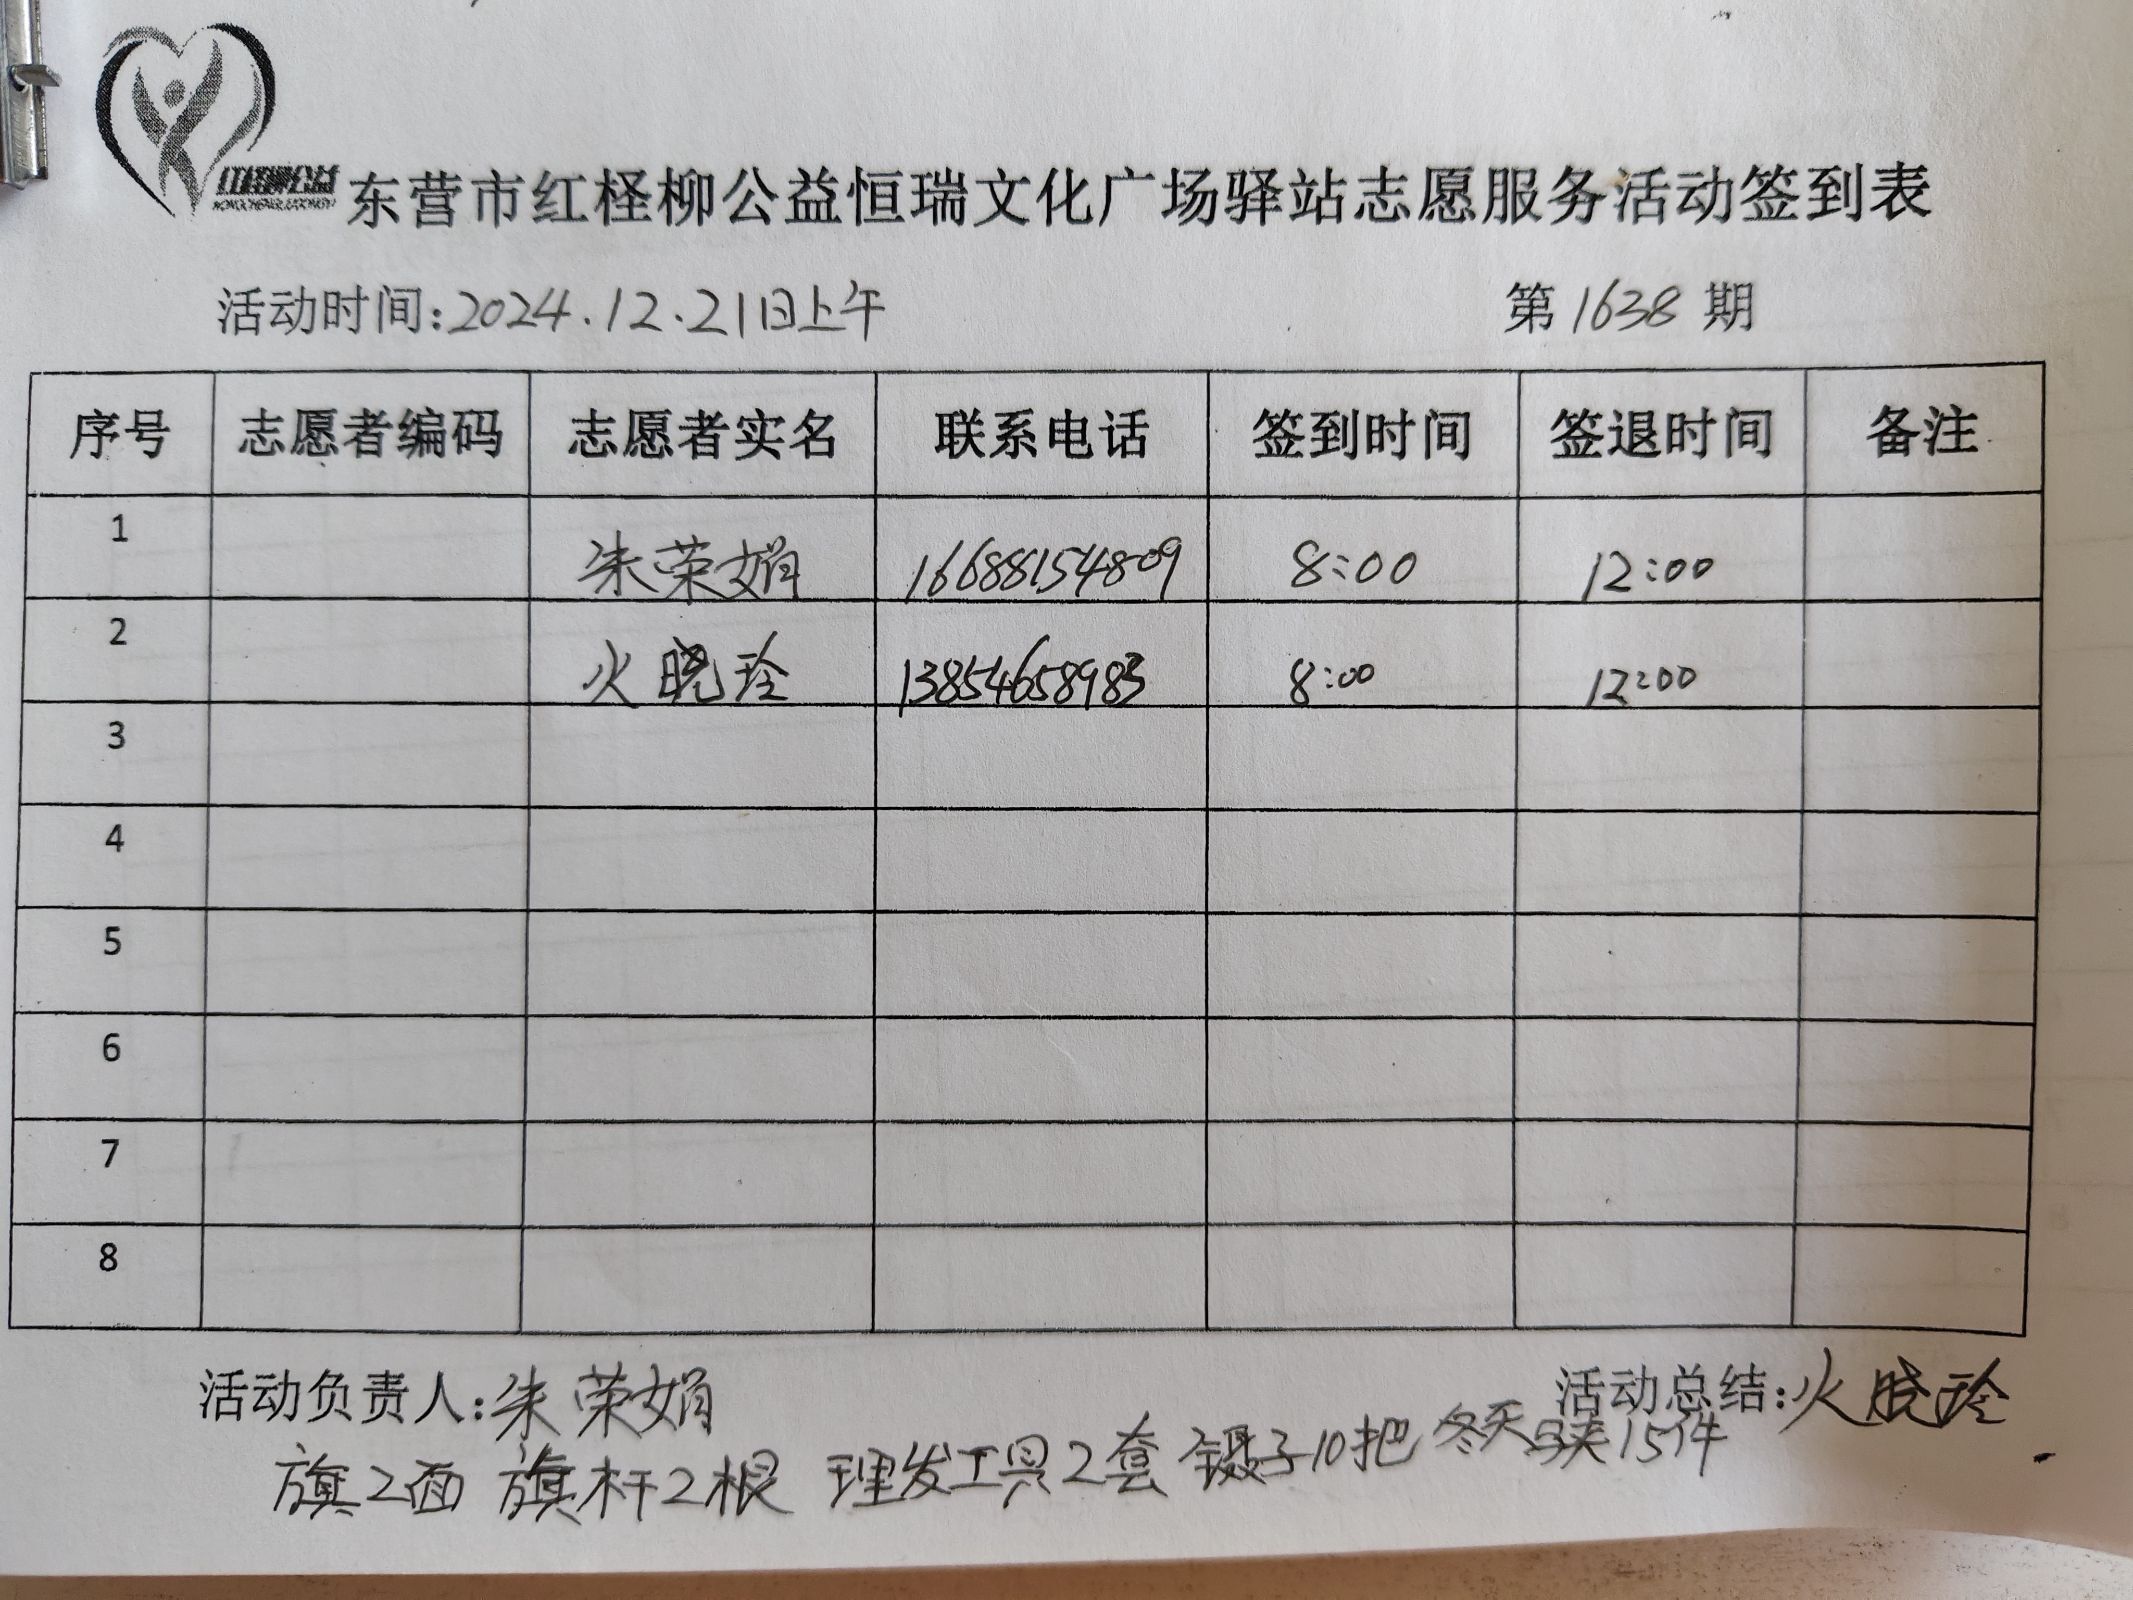 红柽柳公益
东营市红柽柳公益恒瑞文化广场驿站志愿服务活动签到表
活动时间:2024.12.21日上午 第1638期
序号 志愿者编码 志愿者实名 联系电话 签到时间 签退时间 备注
1 朱荣娟 16688154809 8:00 12:00
2 火晓玲 13854658983 8:00 12:00
3
4
5
6
7
8
活动负责人:朱荣娟 活动总结:火晓玲
旗2面 旗杆2根 理发工具2套 镊子10把 冬天马夹15件